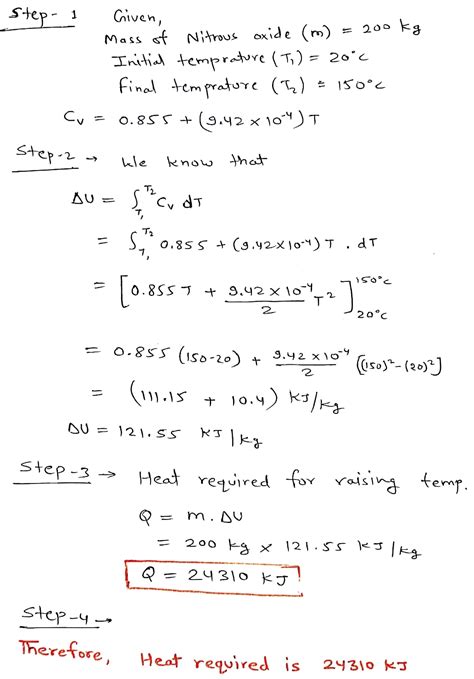 Step-1 Given,
Mass of Nitrous oxide (m) = 200 kg
Initial temprature (T₁) = 20°c
Final temprature (T₂) = 150°c
Cᵥ = 0.855 + (9.42 × 10⁻⁴) T
Step-2 → We know that
ΔU = ∫_{T₁}^{T₂} Cᵥ dT
= ∫_{T₁}^{T₂} 0.855 + (9.42×10⁻⁴) T . dT
= [0.855 T + 9.42 × 10⁻⁴/2 T²]_{20°c}^{150°c}
= 0.855 (150-20) + 9.42 × 10⁻⁴/2 ((150)²-(20)²]
= (111.15 + 10.4) kJ/kg
ΔU = 121.55 kJ/kg
Step-3 → Heat required for raising temp.
Q = m. ΔU
= 200 kg × 121.55 kJ/kg
Q = 24310 kJ
Step-4 →
Therefore, Heat required is 24310 kJ